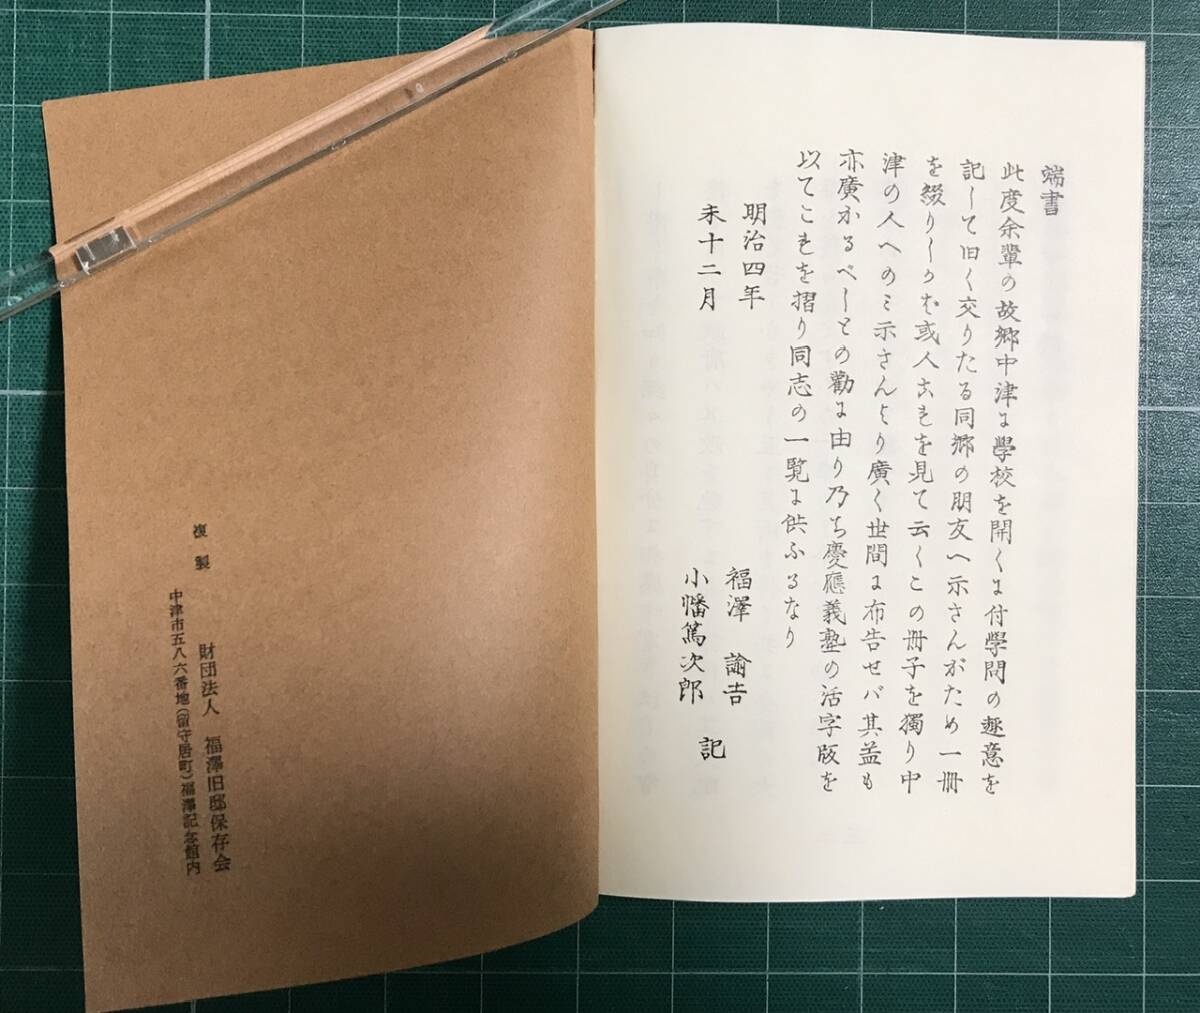 端書
此度余輩の故郷中津に學校を開くに付學問の趣意を
記して旧く交りたる同郷の朋友へ示さんがため一冊
を綴りしかば或人これを見て云くこの冊子を獨り中
津の人へのミ示さんより廣く世間に布告せバ其益も
亦廣かるべしとの勸に由り乃ち慶應義塾の活字版を
以てこれを摺り同志の一覧に供ふるなり
明治四年
未十二月
福澤 諭吉
小幡篤次郎
記
複製
財団法人 福澤旧邸保存会
中津市五八六番地(留守居町)福澤記念館内